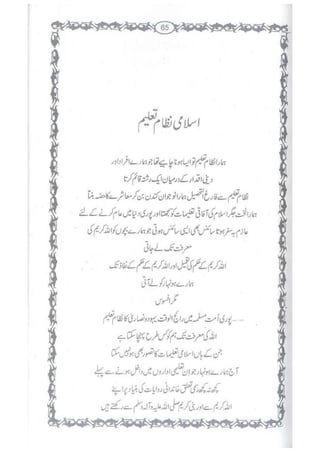 65
اسلامی نظام تعلیم
ہمارا نظام تعلیم تو ایسا ہونا چاہیے تھا جو ہمارے افراد اور
دینی اقدار کے درمیان ایک رشتہ قائم کرتا
نظام تعلیم سے فارغ التحصیل ہمارا نوجوان کندن بن کر معاشرے کا حصہ بنتا
ہمارا لخت جگر اسلام کی آفاقی تعلیمات کو سمجھتا اور پوری دنیا میں عام کرنے کے لئے
عازم سفر ہوتا سائنس بھی ایسی سائنس ہوتی جو ہمارے بچوں کو اللہ کریم کی
معرفت تک لے جاتی
اللہ کریم کے حکم کی تکمیل اور اللہ کریم کے حکم کے نفاذ تک
ہمارے ہونہار کو لے آتی
مگر افسوس
پوری امت مسلمہ میں رائج الوقت یہود و نصاریٰ کا نظام تعلیم
اللہ کی معرفت تک ہم کو کس طرح پہنچا سکتا ہے
جن کے ہاں اسلامی تعلیمات کا تصور بھی ہو نہیں سکتا
آج ہمارے ہونہار جوان تعلیمی اداروں میں داخل ہونے سے پہلے
کچھ نہ کچھ دینی تعلق خاندانی روایات کی بنیاد پر اپنے
اللہ کریم سے اور نبی کریم صلی اللہ علیہ وآلہ وسلم سے رکھتے ہیں